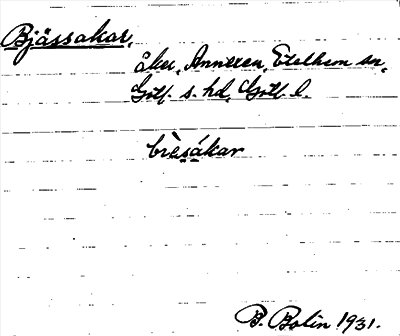 Bjässakar,
åker, Anneren, Etelhem sn,
Gotl. s. hd, Gotl. l.
biesákar
B. Bolin 1931.